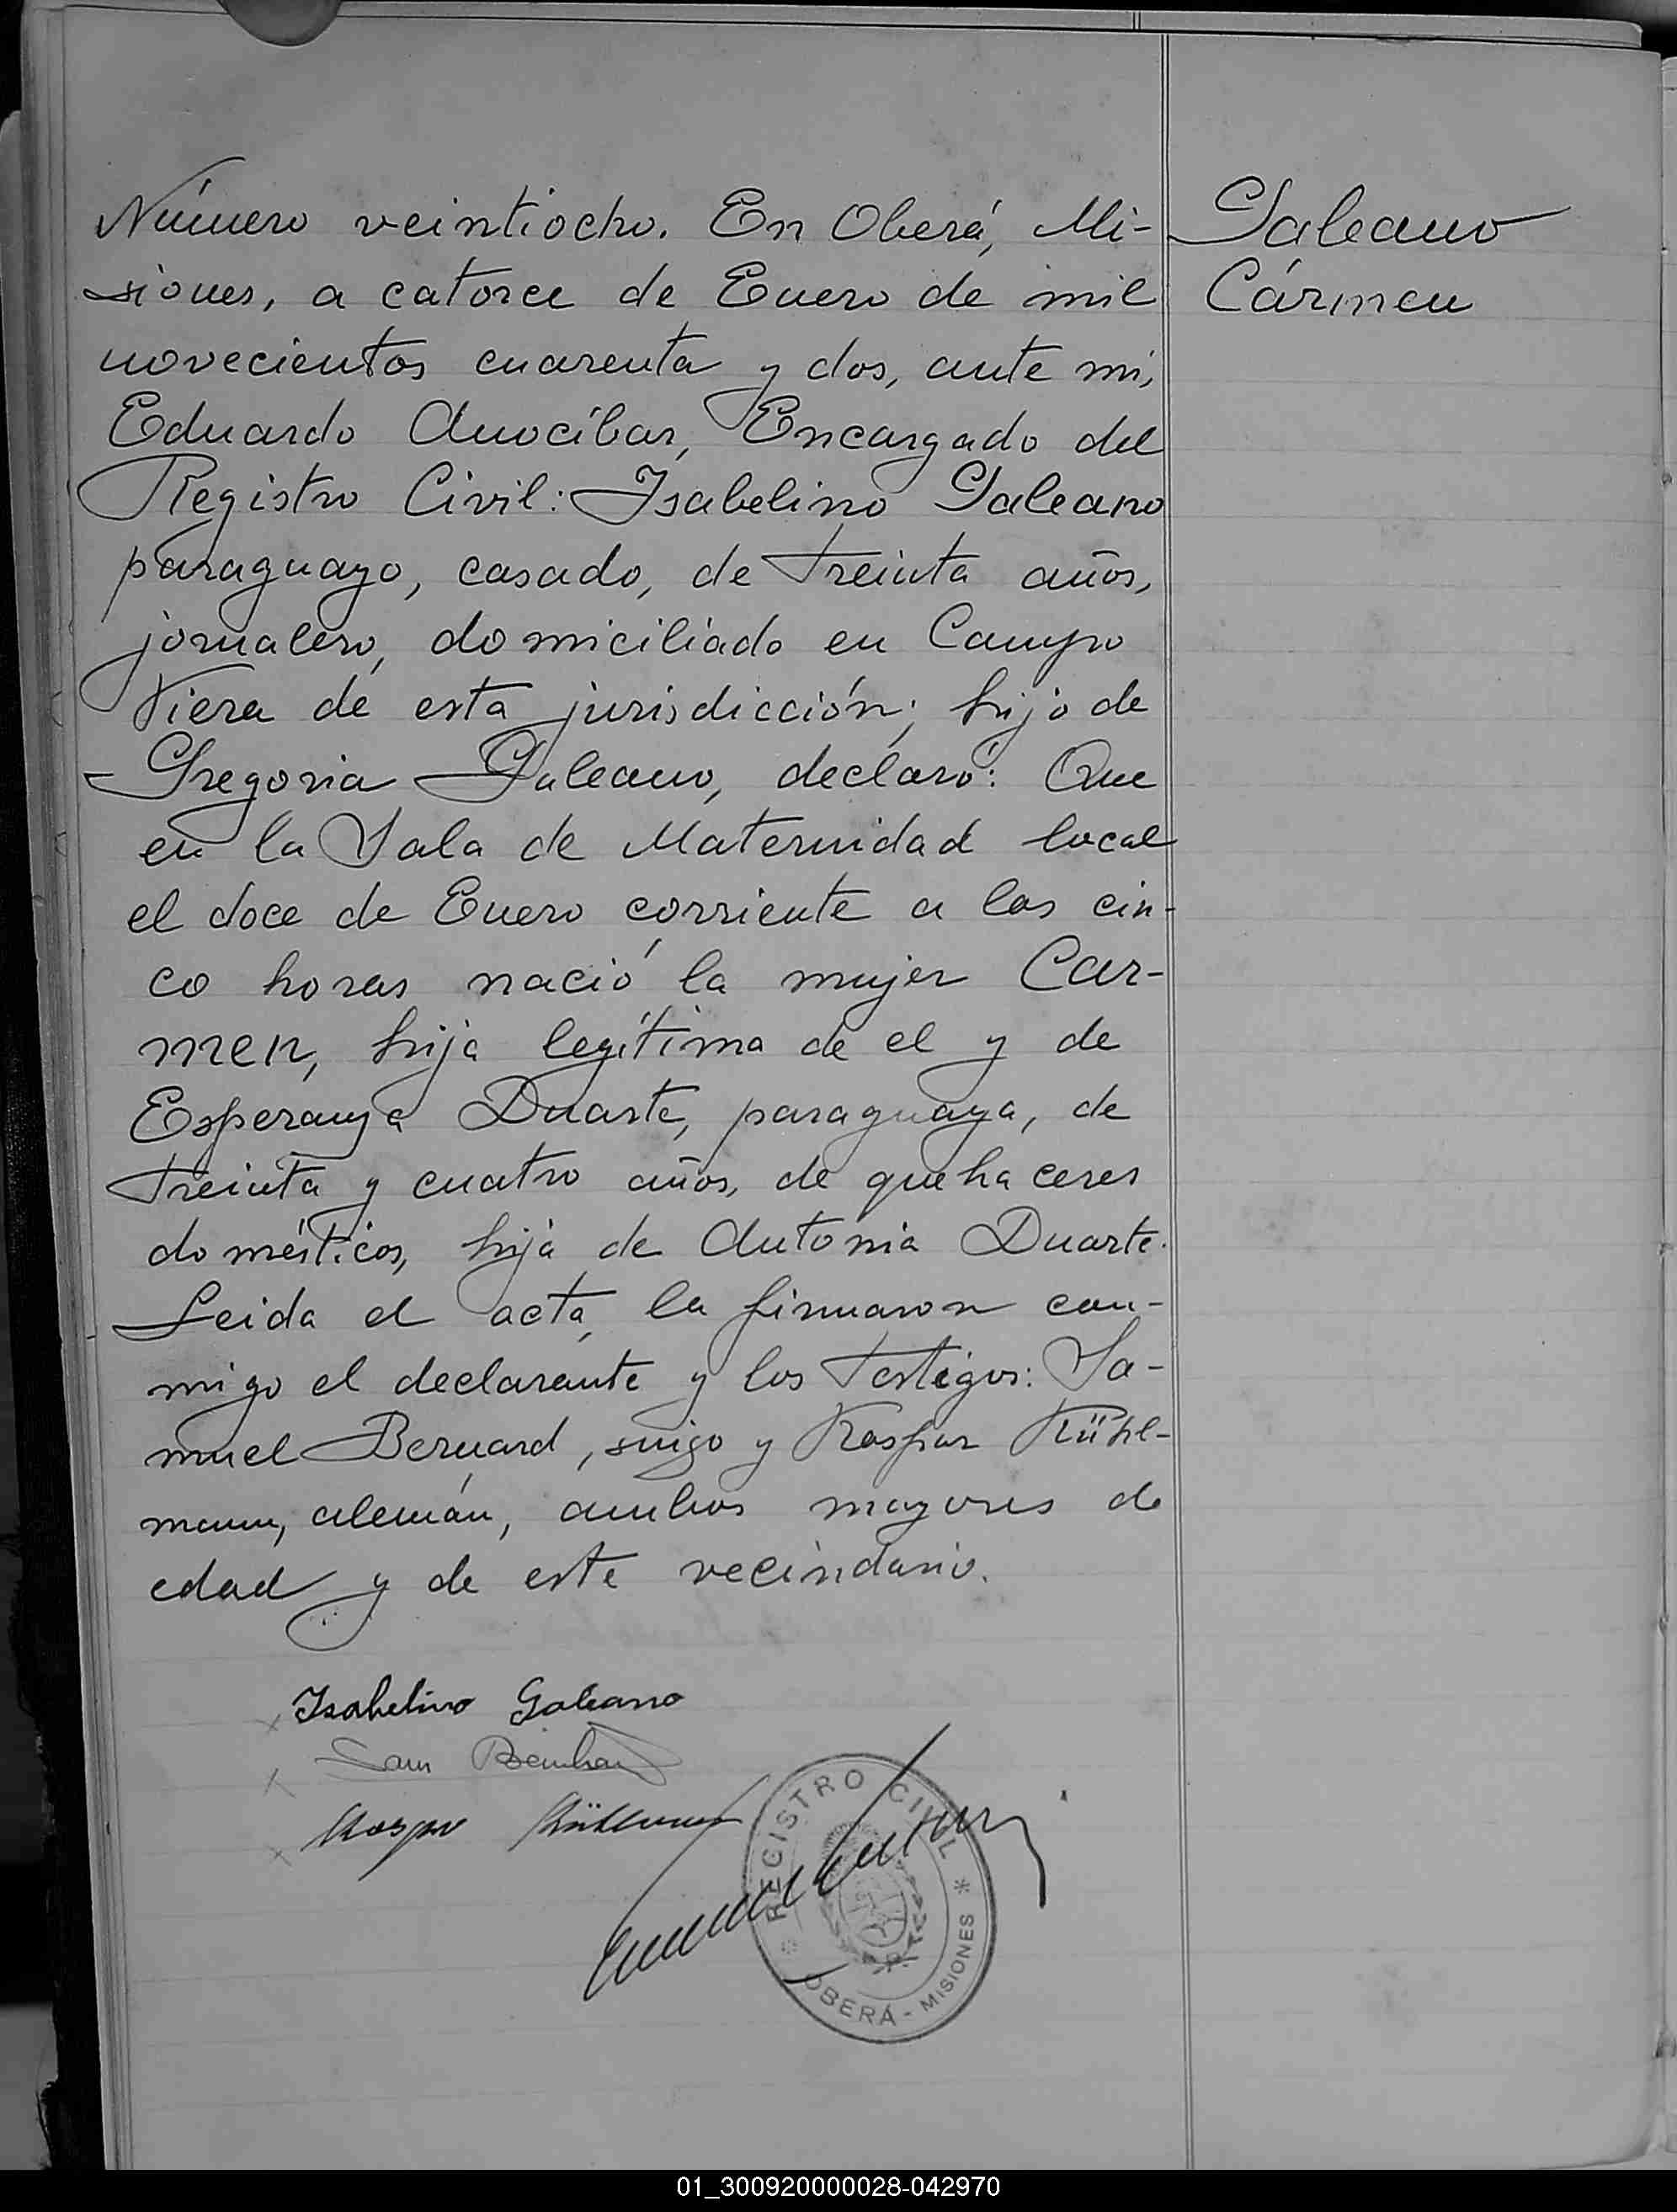 Número veintiocho. En Oberá, Mi-
siones, a catorce de Enero de mil
novecientos cuarenta y dos, ante mi,
Eduardo Anocíbar, Encargado del
Registro Civil: Isabelino Galeano
paraguayo, casado, de treinta años,
jornalero, domiciliado en Campo
Viera de esta jurisdicción; hijo de
Gregoria Galeano, declaró: Que
en la Sala de Maternidad local
el doce de Enero corriente a las cin-
co horas nació la mujer Car-
men, hija legítima de el y de
Esperanza Duarte, paraguaya, de
treinta y cuatro años, de quehaceres
domésticos, hija de Antonia Duarte.
Leida el acta, la firmaron con-
migo el declarante y los testigos: Sa-
muel Bernard, suizo y Kaspar Kühl-
mann, alemán, ambos mayores de
edad y de este vecindario.
Galeano
Cármen
Isabelino Galeano
Sam
Kaspar
REGISTRO CIVIL
OBERÁ - MISIONES
01_300920000028-042970